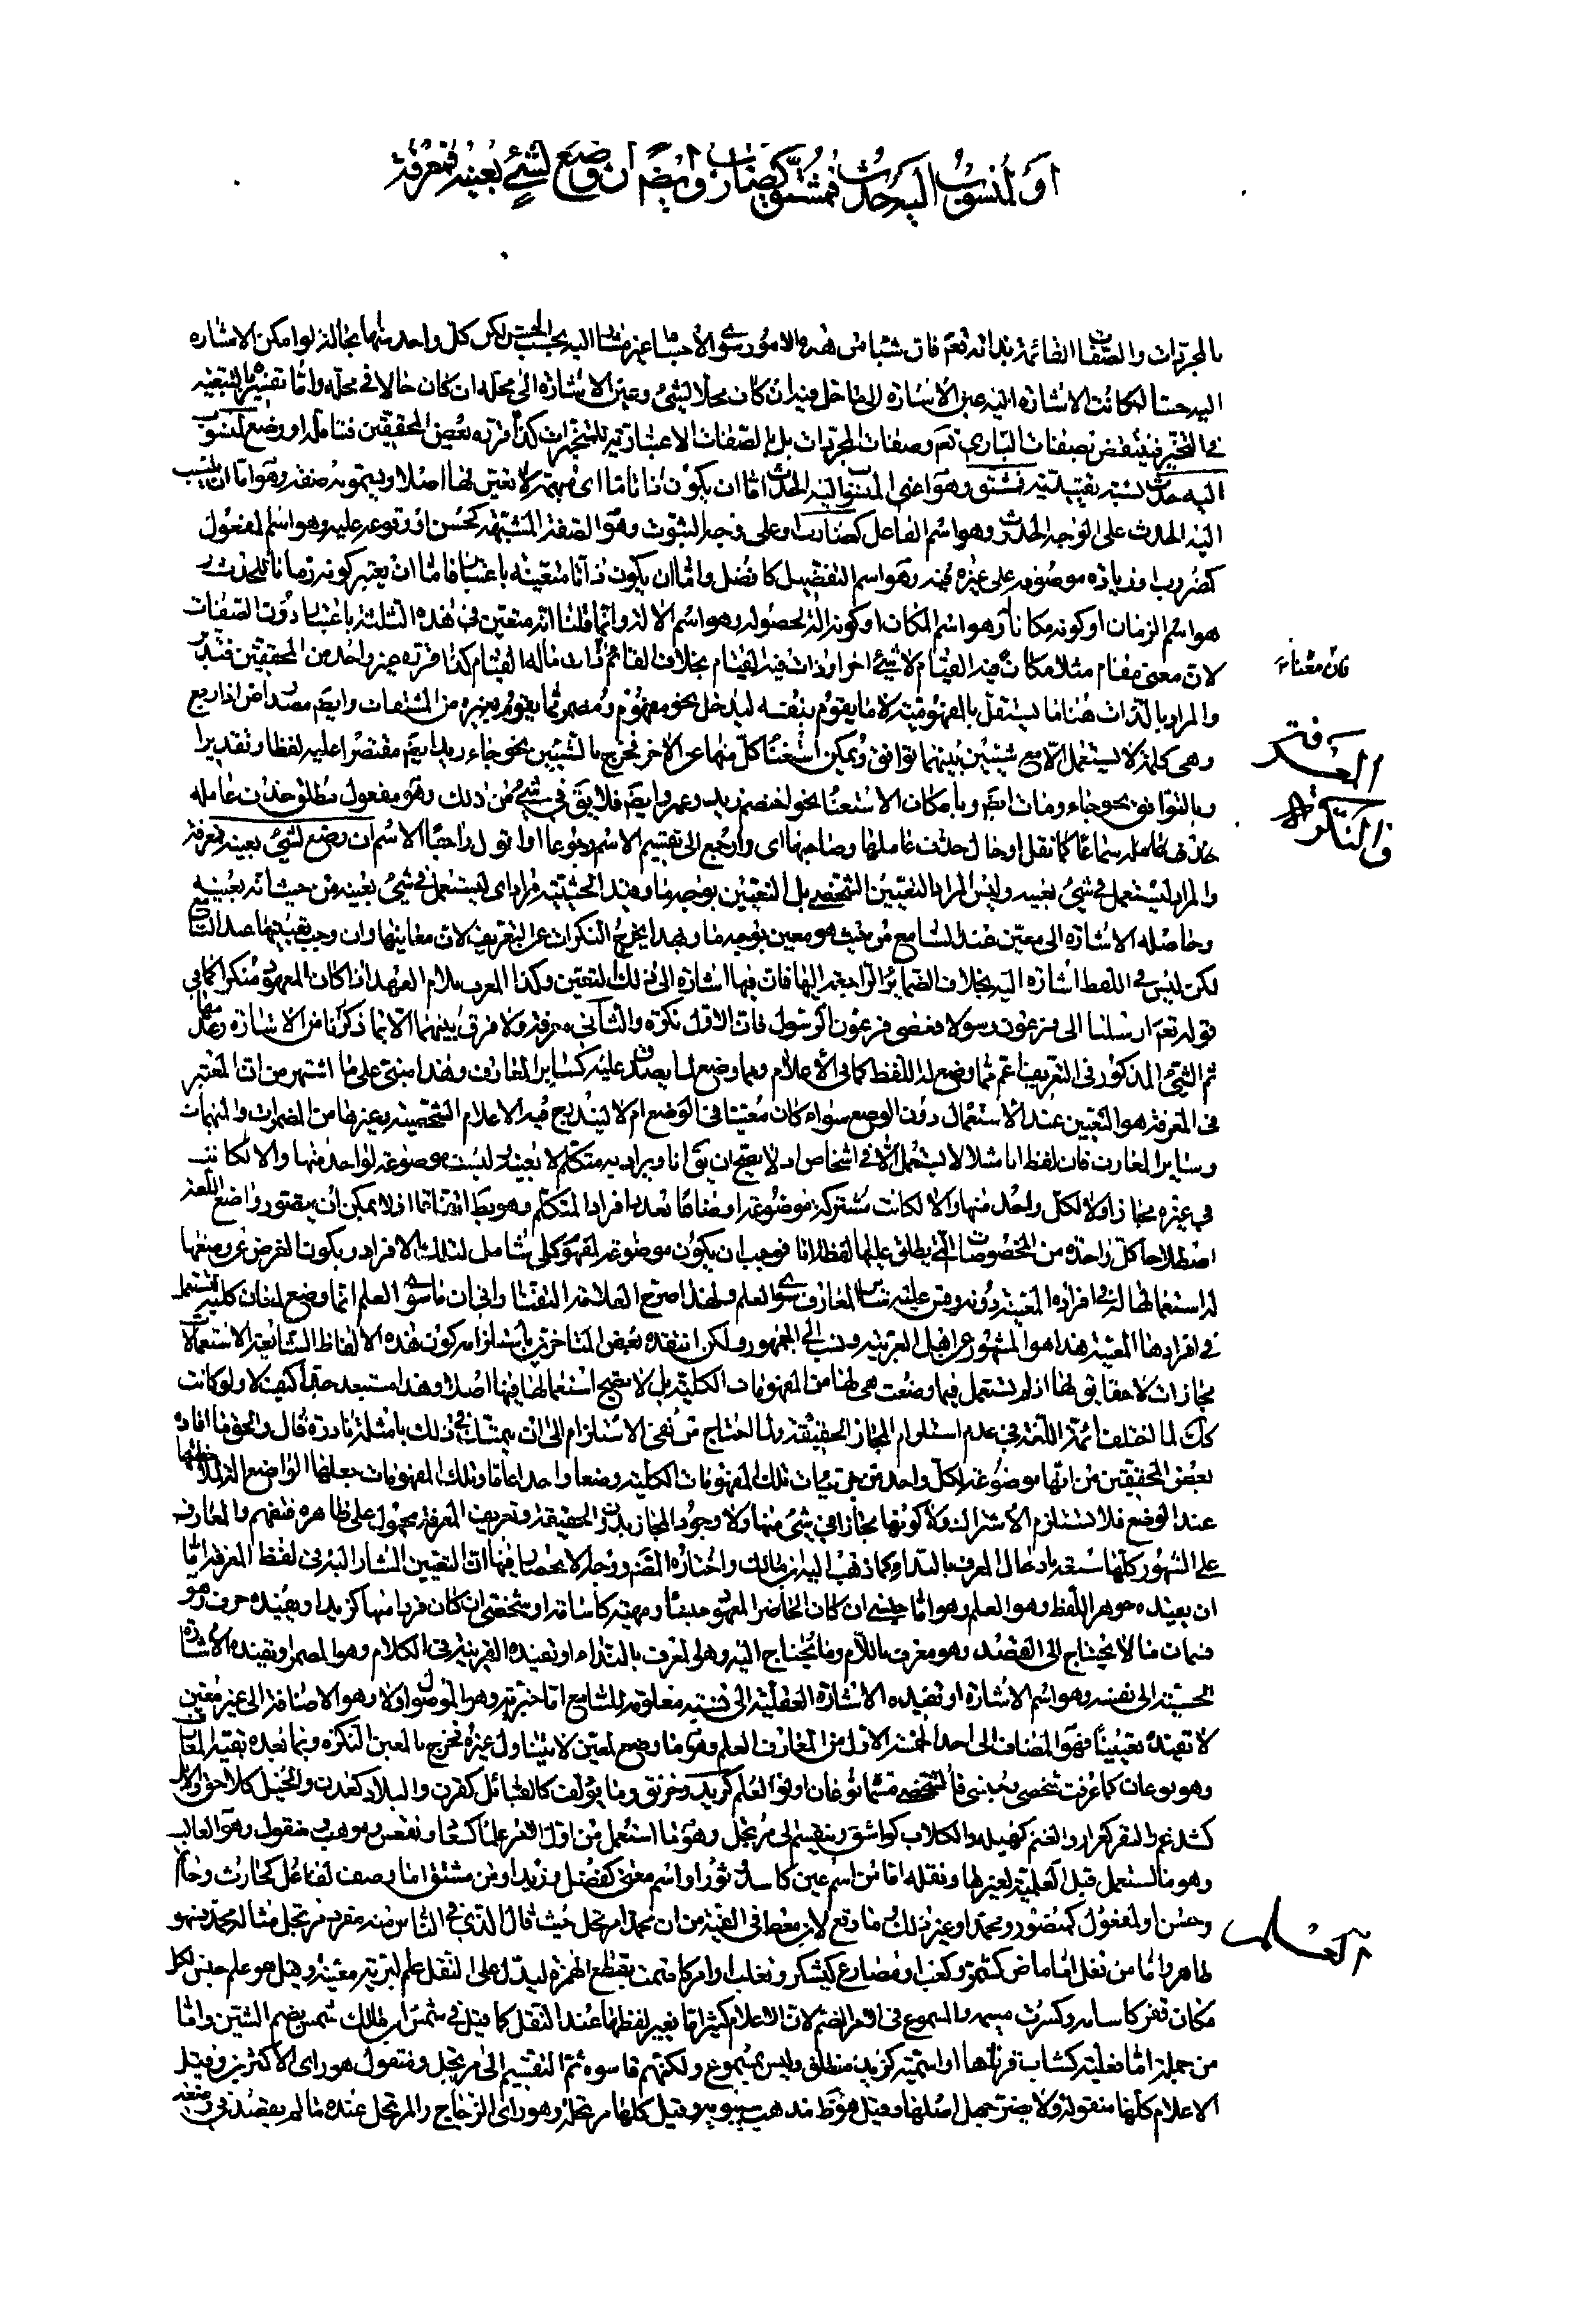 او لمنسوب اليه حدث فمشتق كضارب وايضا ان وضع لشئ بعينه فمعرفة
بالمجردات والصفات القائمة بذاته تعم فان شيئا من هذه الامور سوى الاجسام غير مشار اليه بحسب الحس لكن كل واحد منها بحالة لو امكن الاشارة
اليه حسا لكانت الاشارة اليه عين الاشارة الى ما حل فيه ان كان محلا لشئ وعين الاشارة الى محله ان كان حالا في محله واما تفسيره بالتبعية
في التحيز فينتقض بصفات الباري تعم وصفات المجردات بل بالصفات الاعتبارية للمتحيزات كذا قرره بعض المحققين فتامل او وضع لمنسوب
اليه حدث نسبة تقييدية فمشتق وهو اعنى المنسوب اليه الحدث اما ان يكون ذاتا ما اى مبهمة لا تعين لها اصلا ويسمونه صفة وهو اما ان ينسب
اليه الحدث على وجه الحدوث وهو اسم الفاعل كضارب او على وجه الثبوت وهو الصفة المشبهة كحسن او وقوعه عليه وهو اسم المفعول
كمضروب او زيادة موصوفه على غيره فيه وهو اسم التفضيل كافضل واما ان يكون ذاتا متعينة باعتبار فاما ان يعتبر كونه زمانا للحدث
هو اسم الزمان او كونه مكانا وهو اسم المكان او كونه الة لحصوله وهو اسم الالة وانما قلنا انه متعين في هذه الثلثة باعتبار دون الصفات
لان معنى مقام مثلا مكان فيه القيام لا شئ اخر او ذات فيه القيام بخلاف القائم ذات ماله القيام كذا قرره غير واحد من المحققين فتدبر
فان معناه
والمراد بالذات هنا ما يستقل بالمفهومية لا ما يقوم بنفسه ليدخل نحو مفهوم ومضمر مما يقوم بغيره من المشتقات وايضا مصدر اض اذا رجع
وهى كلمة لا تستعمل الا مع شيئين بينهما توافق ويمكن استغناء كل منهما عن الاخر فخرج بالشيئين نحو جاء زيد ايضا مقتصرا عليه لفظا وتقديرا
المعرفة
والنكرة
وبالتوافق نحو جاء ومات ايضا وبامكان الاستغناء نحو اختصم زيد وعمرو ايضا فلا يق في شئ من ذلك وهو مفعول مطلق حذف عامله
حذف عامله سماعا كما نقل او حال حذف عاملها وصاحبها اى وارجع الى تقسيم الاسم رجوعا او اقول راجعا الاسم ان وضع لشئ بعينه فمعرفة
والمراد ليستعمل في شئ بعينه وليس المراد التعيين الشخصى بل التعيين بوجه ما وقيد الحيثية مراد اى ليستعمل في شئ بعينه من حيث انه بعينه
وحاصله الاشارة الى معين عند السامع من حيث هو معين بوجه ما وبهذا يخرج النكرات عن التعريف لان معانيها وان وجب تعينها عند السامع
لكن ليس في اللفظ اشارة اليه بخلاف الضمائر الراجعة اليها فان فيها اشارة الى ذلك التعين وكذا المعرف بلام العهد اذا كان المعهود منكرا كما في
قوله تعم ارسلنا الى فرعون رسولا فعصى فرعون الرسول فان الاول نكرة والثانى معرفة ولا فرق بينهما الا بما ذكرنا من الاشارة وعدمها
ثم الشئ المذكور في التعريف اعم مما وضع له اللفظ كما في الاعلام ومما وضع لما يصدق عليه كسائر المعارف وهذا مبنى على ما اشتهر من ان المعتبر
في المعرفة هو التعيين عند الاستعمال دون الوضع سواء كان معينا في الوضع ام لا ليندرج فيه الاعلام الشخصية وغيرها من المضمرات والمبهمات
وسائر المعارف فان لفظ انا مثلا لا يستعمل الا في اشخاص اذ لا يصح ان يق انا ويراد به متكلم لا بعينه ليست موضوعة لواحد منها والا لكانت
في غيره مجازا ولا لكل واحد منها والا لكانت مشتركة موضوعة اوضاعا بعدد افراد المتكلم وهو بط اتفاقا اذ لا يمكن ان يتصور واضع اللغة
اصطلاحا كل واحدة من الخصوصيات التى يطلق عليها لفظ انا فوجب ان يكون موضوعة لمفهوم كلى شامل لتلك الافراد ويكون الغرض عن وضعها
له استعمالها في افراده المعينة دونه وقس عليه سائر المعارف سوى العلم ولهذا صرح العلامة التفتازانى بان ما سوى العلم انما وضع لمفهومات كلية لتستعمل
في افرادها المعينة هذا هو المشهور عن اهل العربية ونسب الى الجمهور ولكن انتقده بعض المتاخرين باستلزامه كون هذه الالفاظ الشايعة الاستعمال
مجازات لا حقايق لها اذ لم تستعمل فيما وضعت هى لها من المفهومات الكلية بل لا يصح استعمالها فيها اصلا وهذا مستبعد جدا كيف لا ولو كانت
كذلك لما اختلف ائمة اللغة في عدم استلزام المجاز الحقيقة ولما احتاج من نفى الاستلزام الى ان يتمسك في ذلك بامثلة نادرة قال والحق ما افاده
بعض المحققين من انها موضوعة لكل واحد من جزئيات تلك المفهومات الكلية وضعا واحدا عاما وتلك المفهومات جعلها الواضع الة لملاحظتها
عند الوضع فلا تستلزم الاشتراك ولا كونها مجازا في شئ منها ولا وجود المجاز بدون الحقيقة وتعريف المعرفة محمول على ظاهره فتفهم والمعارف
على المشهور كلها ستة بادخال المعرف بالنداء كما ذهب اليه ابن مالك واختاره القسم ووجه الانحصار فيها ان التعيين المشار اليه في لفظ المعرفة اما
ان يفيده جوهر اللفظ وهو العلم وهو اما جنسى ان كان الحاضر المعهود جنسا وماهية كاسامة او شخصى ان كان فردا منها كزيد او يفيده حرف وهو
قسمان ما لا يحتاج الى القصد وهو معرف باللام وما يحتاج اليه وهو المعرف بالنداء او تفيده القرينة في الكلام وهو المضمر او تفيده الاشارة
الحسية الى نفسه وهو اسم الاشارة او تفيده الاشارة العقلية الى نسبة معلومة للسامع اما خبرية وهو الموصول او لا وهو الاضافة الى غير معين
لا تفيده تعيينا فهو المضاف الى احد الخمسة الاول من المعارف العلم وهو ما وضع لمعين لا يتناول غيره فخرج بالمعين النكرة وبما بعده بقية المعارف
وهو نوعان كما عرفت شخصى وجنسى فالشخصى مسماه نوعان اولو العلم كزيد وخرنق وما يؤلف كالقبائل كقرن والبلاد كعدن والخيل كلاحق والابل
كشذقم والبقر كعرار والغنم كهيلة والكلاب كواشق وينقسم الى مرتجل وهو ما استعمل من اول الامر علما كسعاد وفقعس وموهب ومنقول وهو الغالب
وهو ما استعمل قبل العلمية لغيرها ونقله اما من اسم عين كاسد وثور او اسم معنى كفضل وزيد او من مشتق اما وصف لفاعل كحارث وحاتم
العلم
وحسن او لمفعول كمنصور ومحمد او غير ذلك وما وقع لابن معط في الفية من ان محمدا مرتجل حيث قال الذى في الناس منه مفرد مرتجل مثاله محمد فسهو
ظاهر واما من فعل اما ماض كشمر وكعب او مضارع كيشكر وتغلب او امر كاصمت بقطع الهمزة ليدل على النقل علم لبرية معينة وقيل هو علم جنس لكل
مكان قفر كاسامة وكسرت ميمه والمسموع في الامر الضم لان الاعلام كثيرا ما يغير لفظها عند النقل كما قيل في شمس ابن مالك شمس بضم الشين واما
من جملة اما فعلية كشاب قرناها او اسمية كزيد منطلق وليس بمسموع ولكنهم قاسوه ثم التقسيم الى مرتجل ومنقول هو راى الاكثرين وقيل
الاعلام كلها منقولة ولا يضر جهل اصلها وقيل هو ظ مذهب سيبويه وقيل كلها مرتجلة وهو راى الزجاج والمرتجل عنده ما لم يقصد في وضعه